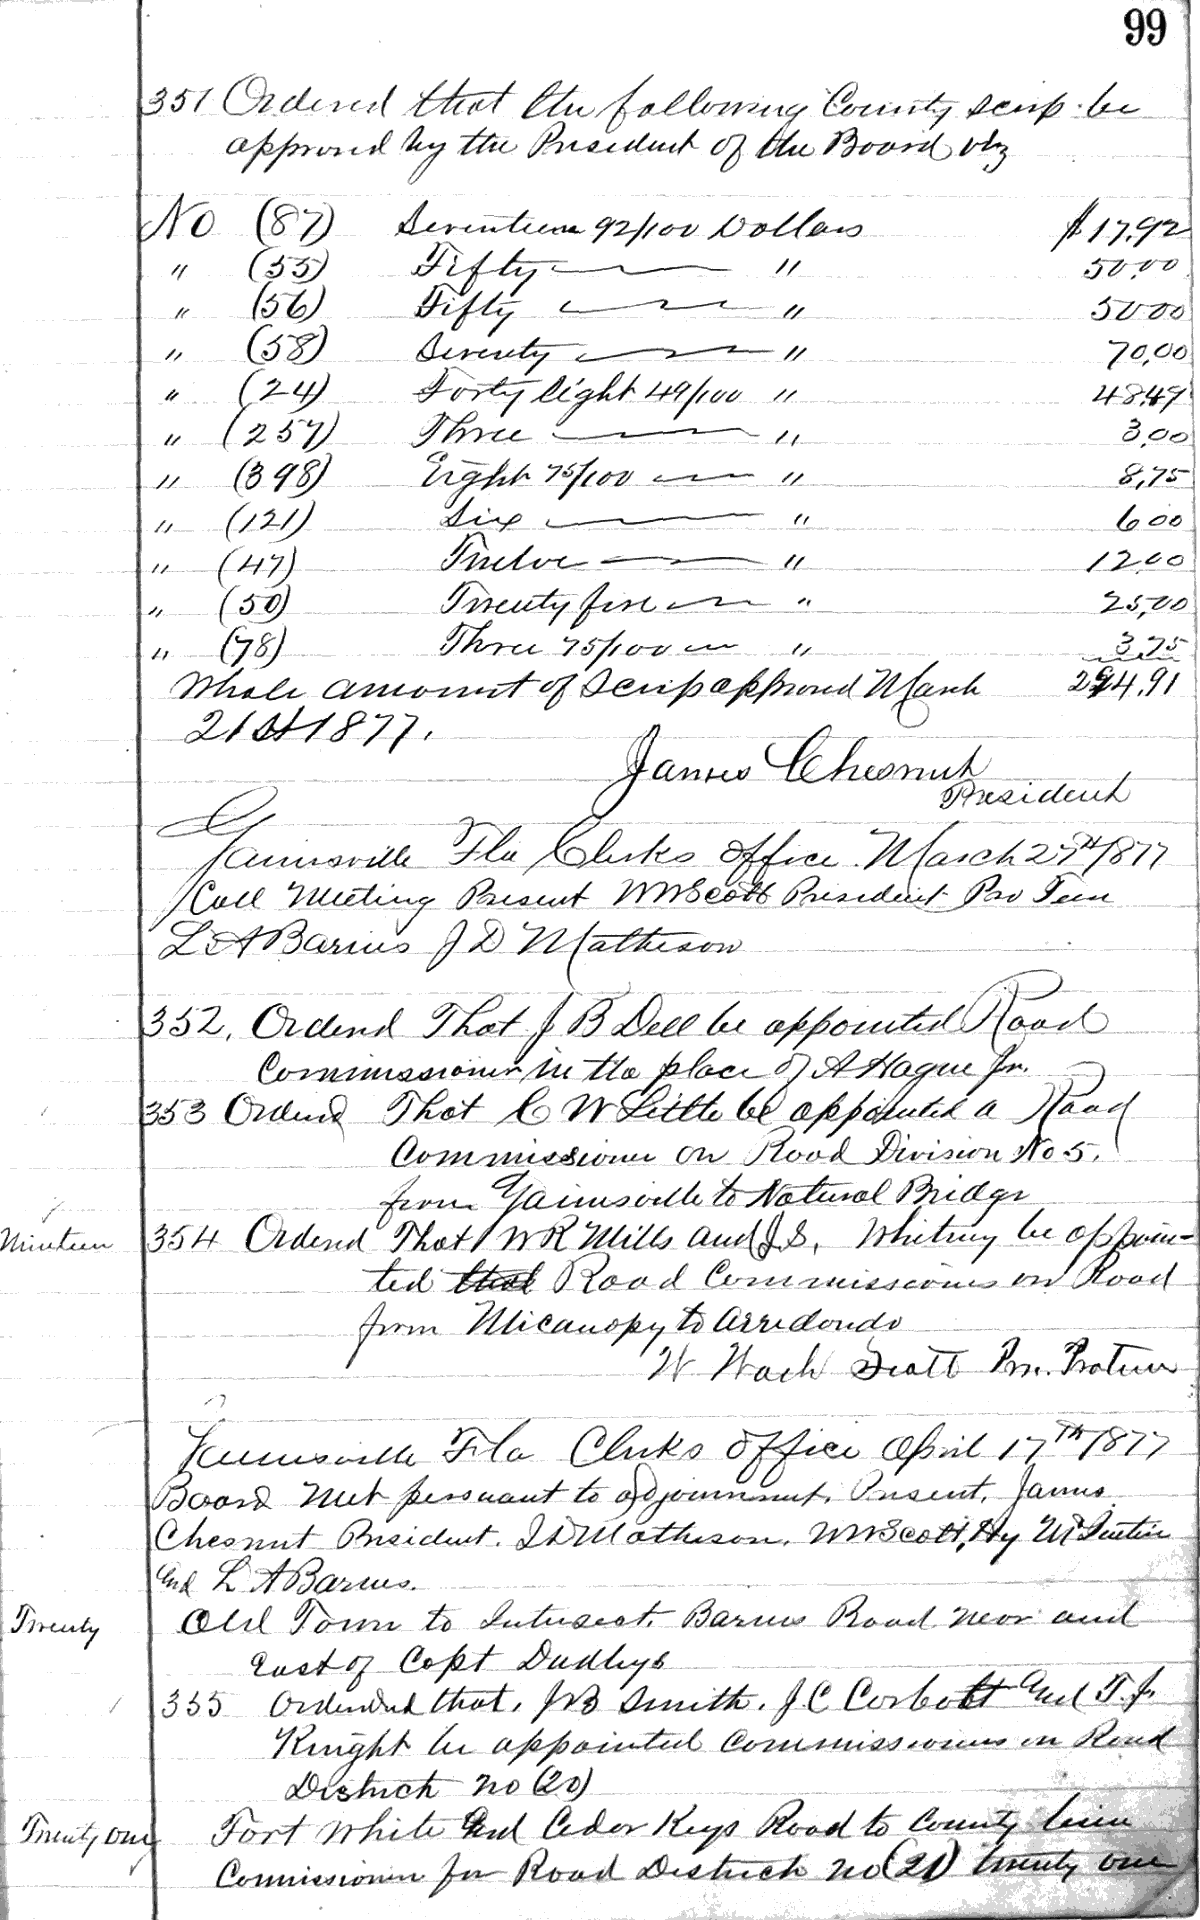 99
351 Ordered that the following County scrip be
approved by the President of the Board viz
No (87) Seventeen 92/100 Dollars $17.92
" (55) Fifty " 50.00
" (56) Fifty " 50 00
" (58) Seventy " 70,00
" (24) Forty Eight 49/100 " 48.49
" (257) Three " 3,00
" (398) Eight 75/100 " 8,75
" (121) Six " 6 00
" (47) Twelve " 12.00
" (50) Twenty five " 25,00
" (78) Three 75/100 " 3,75
Whole amount of Scrip approved March 294.91
21st 1877.
James Chesnut
President
Gainesville Fla Clerks office March 27th 1877
Call Meeting Present WW Scott President Pro Tem
L A Barnes J D Matheson
352, Orderd That J B Dell be appointed Road
Commissioner in the place of A Hague Jr.
353 Orderd That C W Little be appointed a Road
Commissioner on Road Division No 5.
from Gainesville to Natural Bridge
Nineteen 354 Orderd That W R Mills and J. S. Whitney be appoin-
ted that Road Commissioners on Road
from Micanopy to Arredondo
W Wash Scott Pro Tem
Gainesville Fla Clerks office April 17th 1877
Board Met persuant to adjournment. Present, James
Chesnut President. J D Matheson, WW Scott, Hy
and L A Barnes.
Twenty Old Town to Intersect Barnes Road near and
East of Capt Dudleys
355 Ordered that, J B Smith, J C Corbett and T. J.
Knight be appointed Commissioners on Road
District no (20)
Twenty one Fort White and Cedar Keys Road to County line
Commissioner for Road District no (21) twenty one